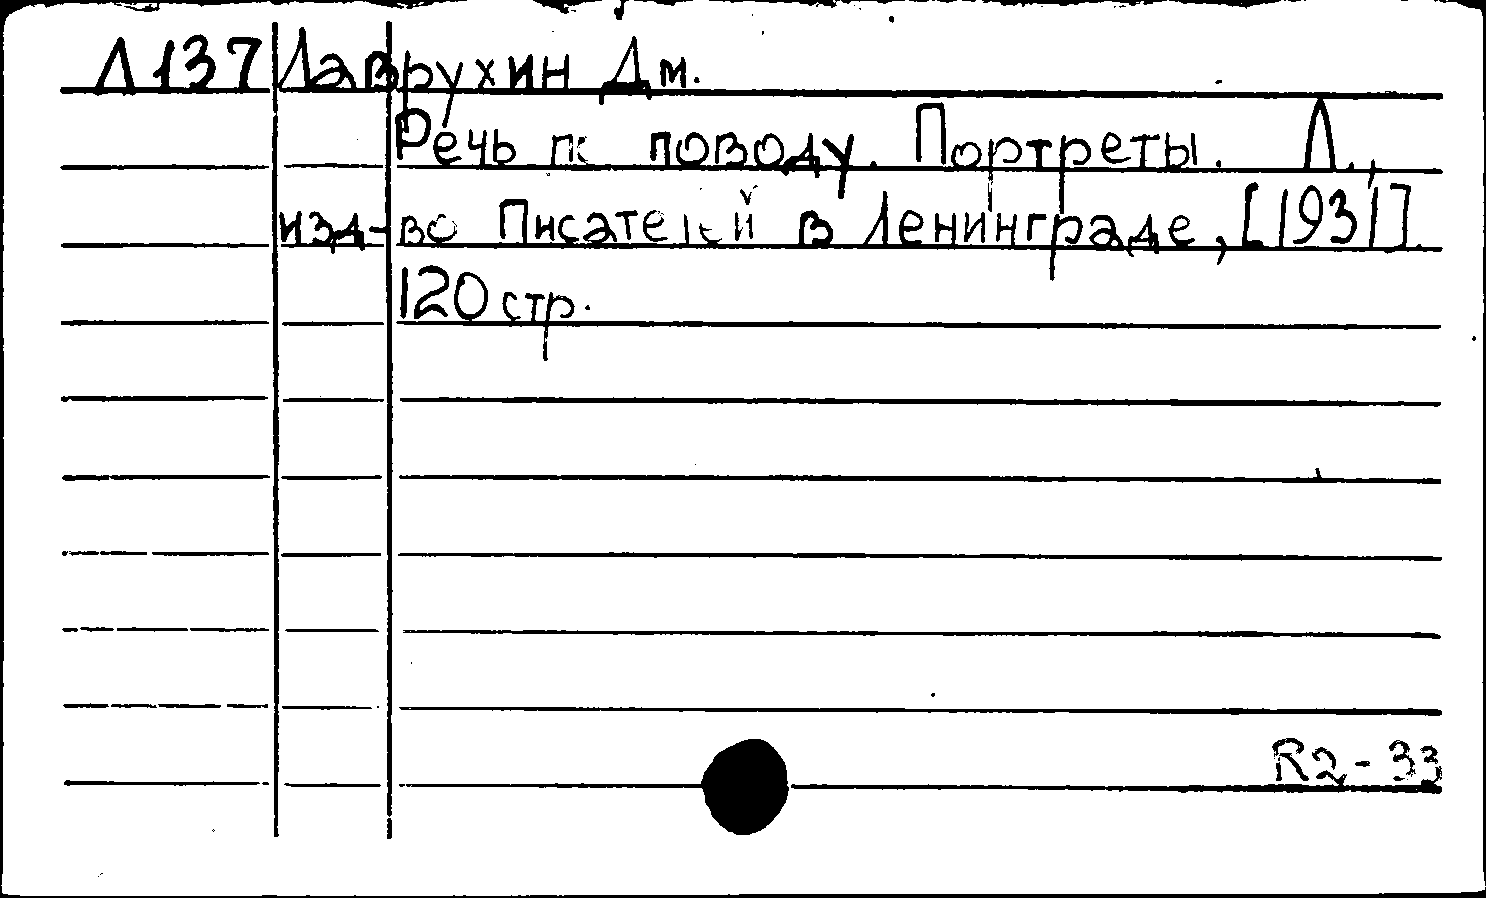 Л137 Лаврухин Дм.
Речь по поводу. Портреты. Л.,
изд-во Писателей в Ленинграде, [1931].
120 стр.
R2-33